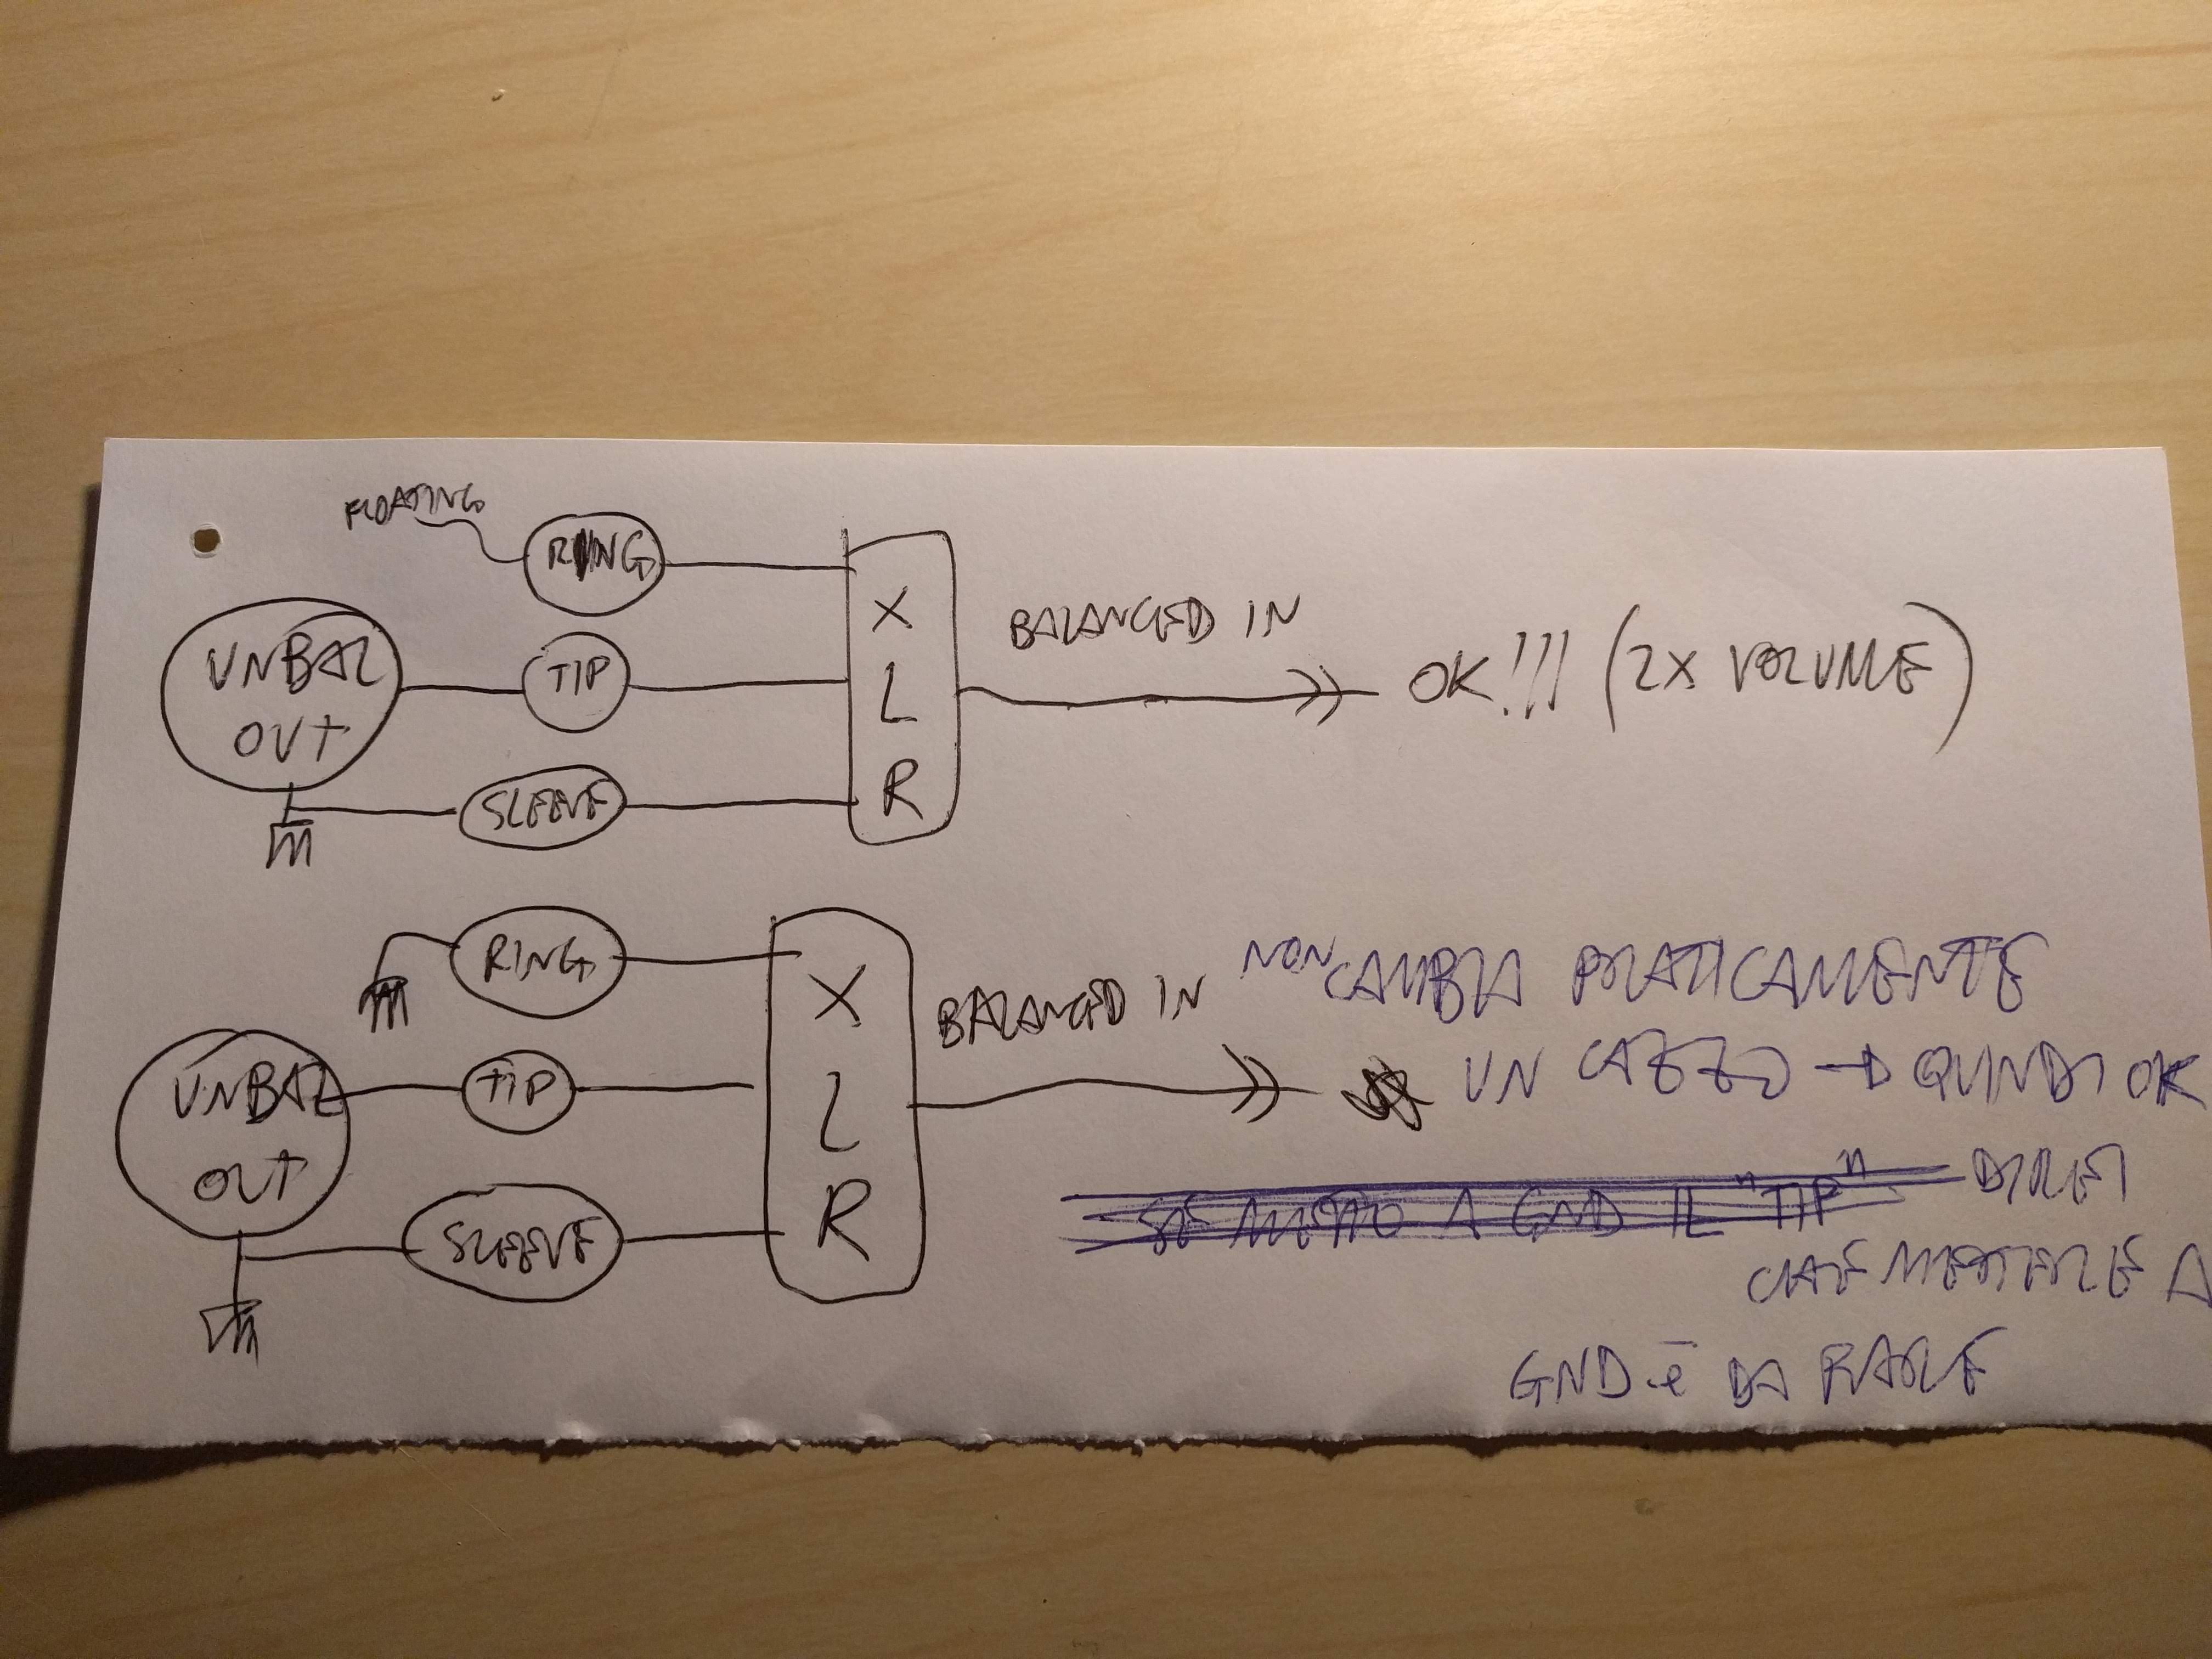 FLOATING
RING
UNBAL
OUT
TIP
SLEEVE
X
L
R
BALANCED IN
OK!!! (2X VOLUME)
RING
UNBAL
OUT
TIP
SLEEVE
X
L
R
BALANCED IN
NON CAMBIA PRATICAMENTE
UN CAZZO → QUINDI OK
SE METTO A GND IL "TIP" DIREI
CHE METTERE A
GND è DA FARE